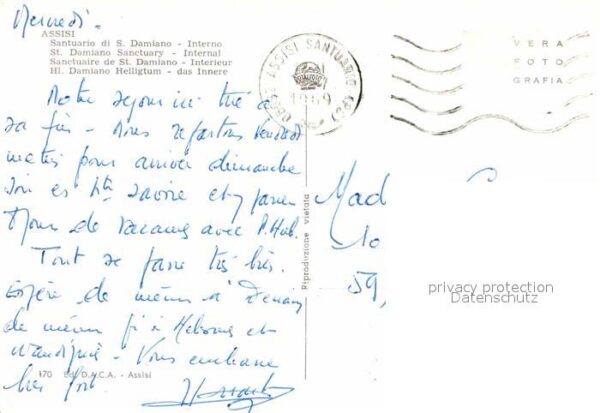 Mercredi.
ASSISI
Santuario di S. Damiano - Interno
St. Damiano Sanctuary - Internal
Sanctuaire de St. Damiano - Interieur
Hl. Damiano Heiligtum - das Innere
ASSISI SANTUARIO (PG)
1969
VERA
FOTO
GRAFIA
Notre séjour ici tire à
sa fin - Nous repartons Vendredi
matin pour arriver dimanche
soir en Hte Savoie et y passer
jours de vacances avec
Tout se passe très bien.
Espère de même à
de même à et
Vous embrasse
bien fort.
Mad
10
59,
Riproduzione vietata
privacy protection
Datenschutz
170 Ed. D.A.C.A. - Assisi